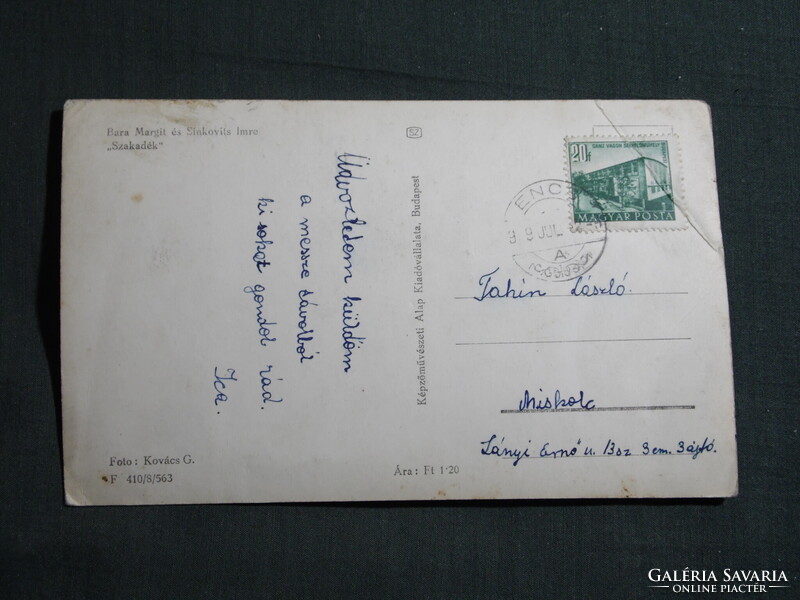 Bara Margit és Sinkovits Imre
„Szakadék"
SZ
Üdvözletem küldöm
a messze távolból
ki sokat gondol rád.
Ica.
Foto: Kovács G.
F 410/8/563
Ára: Ft 1·20
Képzőművészeti Alap Kiadóvállalata, Budapest
20f
MAGYAR POSTA
ENC
9 JUL
A
Tahin László.
Miskolc
Lányi Ernő u. 13sz 3em. 3ajtó.
GALÉRIA SAVARIA
ONLINE PIACTÉR